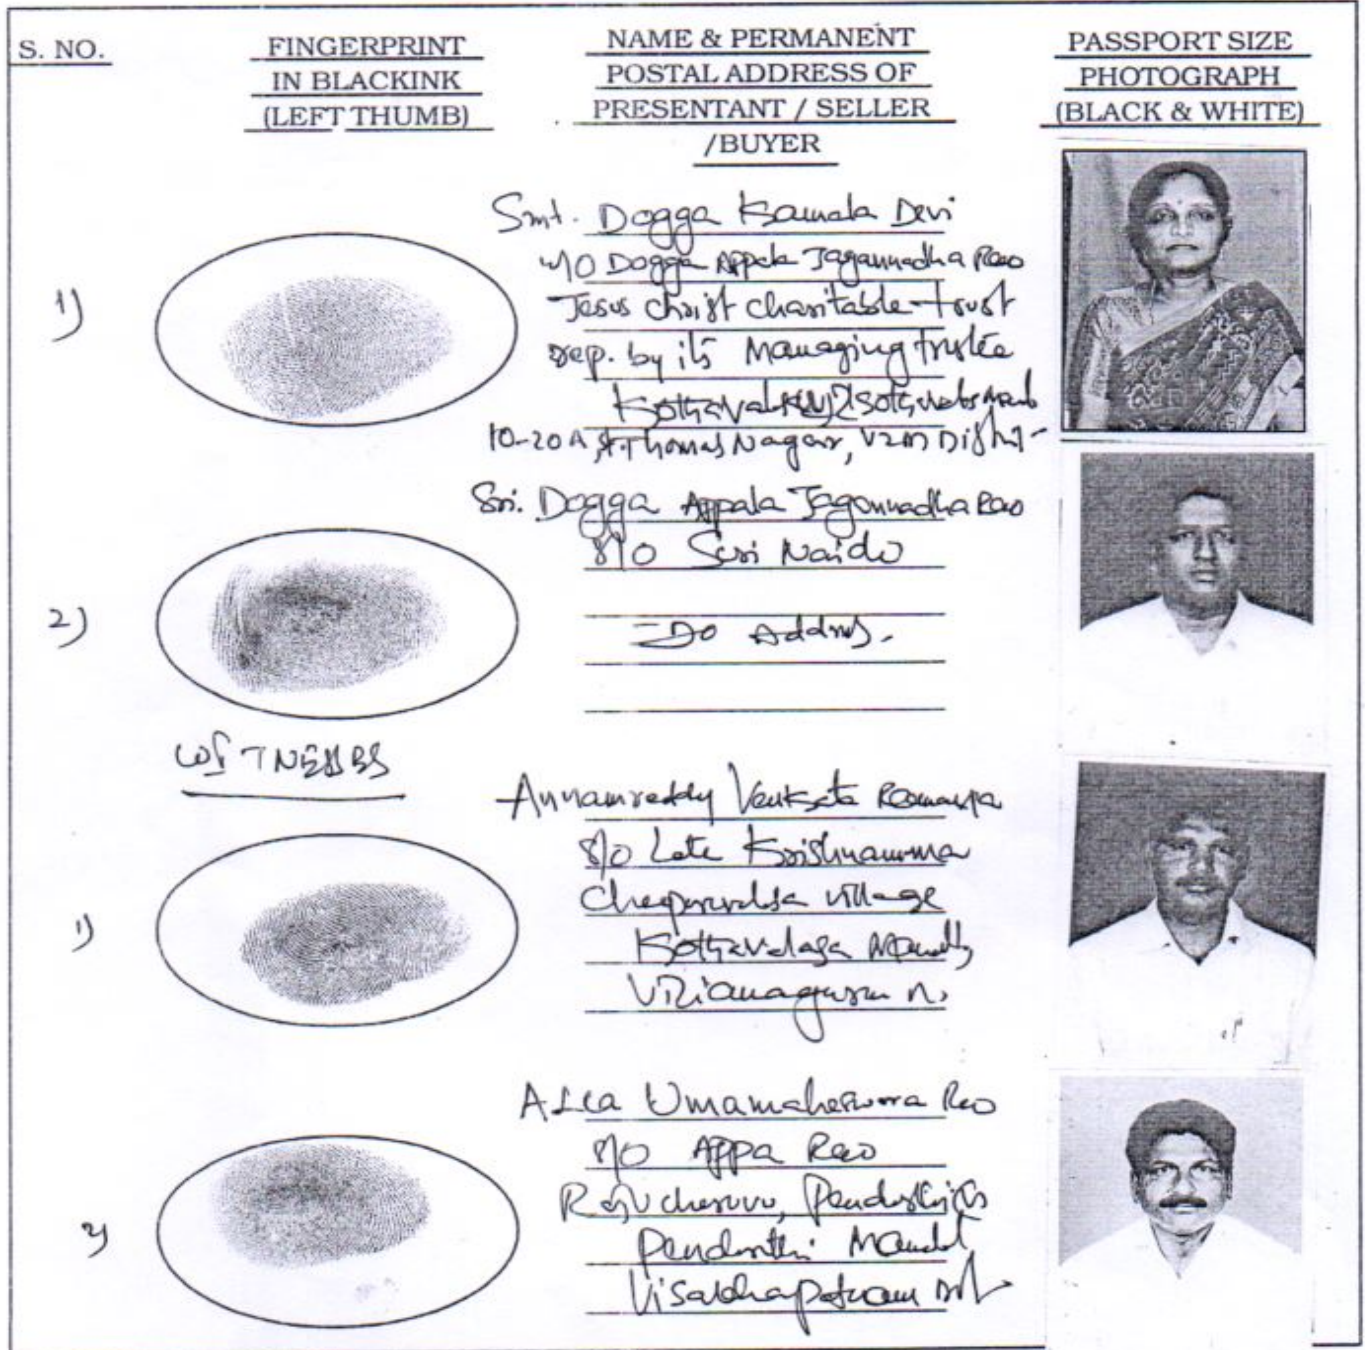 S. NO.
FINGERPRINT
IN BLACKINK
(LEFT THUMB)
NAME & PERMANENT
POSTAL ADDRESS OF
PRESENTANT / SELLER
/BUYER
PASSPORT SIZE
PHOTOGRAPH
(BLACK & WHITE)
1)
Smt. Dogga Kamala Devi
W/O Dogga Appala Jagannadha Rao
Jesus Christ Charitable Trust
rep. by its Managing trustee
10-20A, St. Thomas Nagar, VZM Dist
2)
Sri. Dogga Appala Jagannadha Rao
S/O Suri Naidu
-Do Address.
WITNESSES
1)
Annamreddy Venkata Ramana
S/O Late Krishnamma
village
Kothavalasa Mandal,
2)
Umamaheswara Rao
S/O Appa Rao
Raju cheruvu,
Pendurthi Mandal
Visakhapatnam Dist